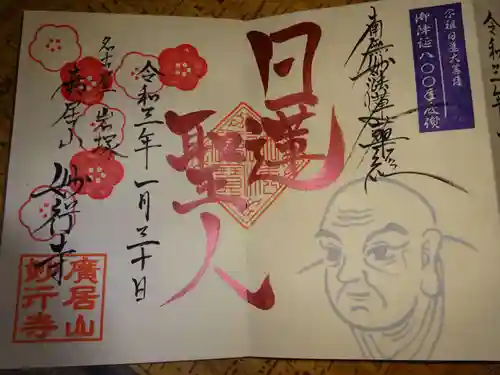 宗祖日蓮大菩薩
御降誕八〇〇年慶讃
南無妙法蓮華経
日蓮
聖人
令和三年 一月三十日
名古屋 岩塚
廣居山 妙行寺
廣居山
妙行寺
令和三年